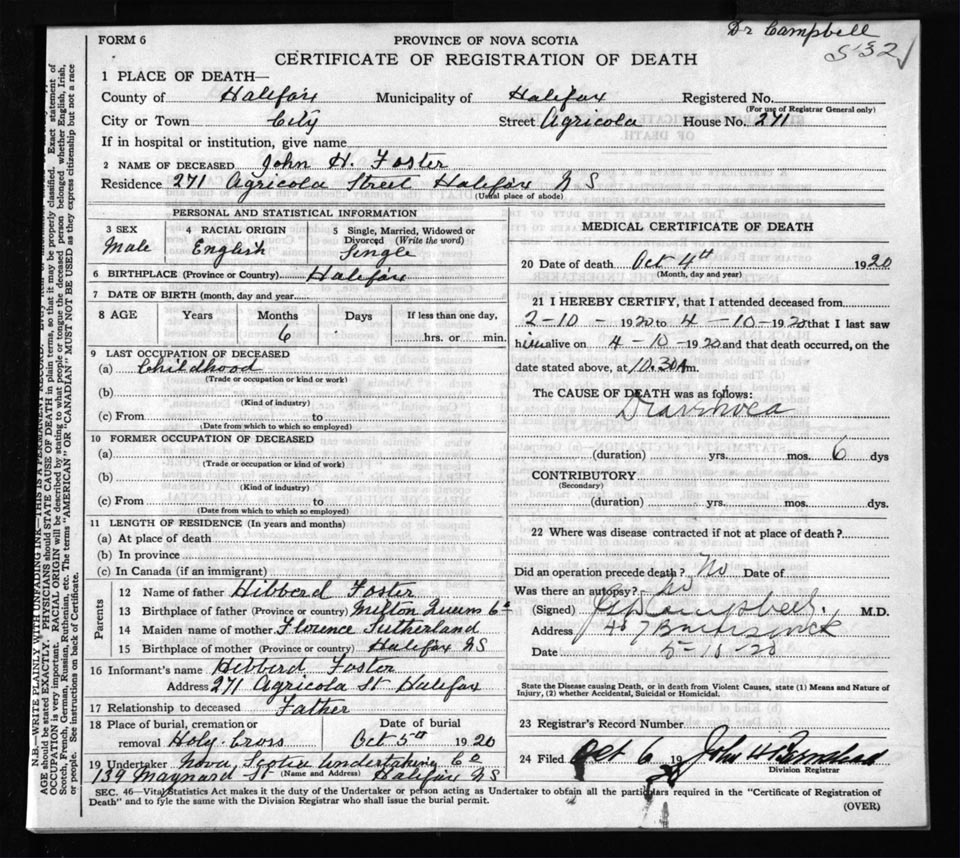 Dr Campbell
532
FORM 6
PROVINCE OF NOVA SCOTIA
CERTIFICATE OF REGISTRATION OF DEATH
1 PLACE OF DEATH—
County of Halifax Municipality of Halifax Registered No.
(For use of Registrar General only)
City or Town City Street Agricola House No. 271
If in hospital or institution, give name
2 NAME OF DECEASED John H. Foster
Residence 271 Agricola Street Halifax N S
(Usual place of abode)
PERSONAL AND STATISTICAL INFORMATION
3 SEX 4 RACIAL ORIGIN 5 Single, Married, Widowed or Divorced (Write the word)
Male English Single
6 BIRTHPLACE (Province or Country) Halifax
7 DATE OF BIRTH (month, day and year)
8 AGE Years Months Days If less than one day,
6 hrs. or min.
9 LAST OCCUPATION OF DECEASED
(a) Childhood
(Trade or occupation or kind or work)
(b)
(Kind of industry)
(c) From to
(Date from which to which so employed)
10 FORMER OCCUPATION OF DECEASED
(a)
(Trade or occupation or kind of work)
(b)
(Kind of industry)
(c) From to
(Date from which to which so employed)
11 LENGTH OF RESIDENCE (In years and months)
(a) At place of death
(b) In province
(c) In Canada (if an immigrant)
Parents
12 Name of father Hibberd Foster
13 Birthplace of father (Province or country) Milton Queens Co
14 Maiden name of mother Florence Sutherland
15 Birthplace of mother (Province or country) Halifax NS
16 Informant's name Hibberd Foster
Address 271 Agricola St Halifax
17 Relationship to deceased Father
18 Place of burial, cremation or Date of burial
removal Holy Cross Oct 5th 1920
19 Undertaker Nova Scotia Undertaking Co
(Name and Address)
139 Maynard St Halifax NS
MEDICAL CERTIFICATE OF DEATH
20 Date of death Oct 4th 1920
(Month, day and year)
21 I HEREBY CERTIFY, that I attended deceased from
2-10-1920 to 4-10-1920 that I last saw
him alive on 4-10-1920 and that death occurred, on the
date stated above, at 10.30 A m.
The CAUSE OF DEATH was as follows:
Diarrhoea
(duration) yrs. mos. 6 dys
CONTRIBUTORY
(Secondary)
(duration) yrs. mos. dys.
22 Where was disease contracted if not at place of death?
Did an operation precede death? No Date of
Was there an autopsy? No
(Signed) Campbell. M.D.
Address 407 Brunswick
Date 5-10-20
State the Disease causing Death, or in death from Violent Causes, state (1) Means and Nature of
Injury, (2) whether Accidental, Suicidal or Homicidal.
23 Registrar's Record Number
24 Filed Oct 6 1920 John H
Division Registrar
SEC. 46—Vital Statistics Act makes it the duty of the Undertaker or person acting as Undertaker to obtain all the particulars required in the "Certificate of Registration of
Death" and to fyle the same with the Division Registrar who shall issue the burial permit.
(OVER)
N.B.—WRITE PLAINLY WITH UNFADING INK—THIS IS A PERMANENT RECORD.
AGE should be stated EXACTLY. PHYSICIANS should STATE CAUSE OF DEATH in plain terms, so that it may be properly classified. Exact statement of
OCCUPATION is very important. RACIAL ORIGIN will be described by stating to what people or tongue the deceased person belonged whether English, Irish,
Scotch, French, German, Russian, Ruthenian, etc. The terms "AMERICAN" OR "CANADIAN" MUST NOT BE USED as they express citizenship but not a race
or people. See instructions on back of Certificate.